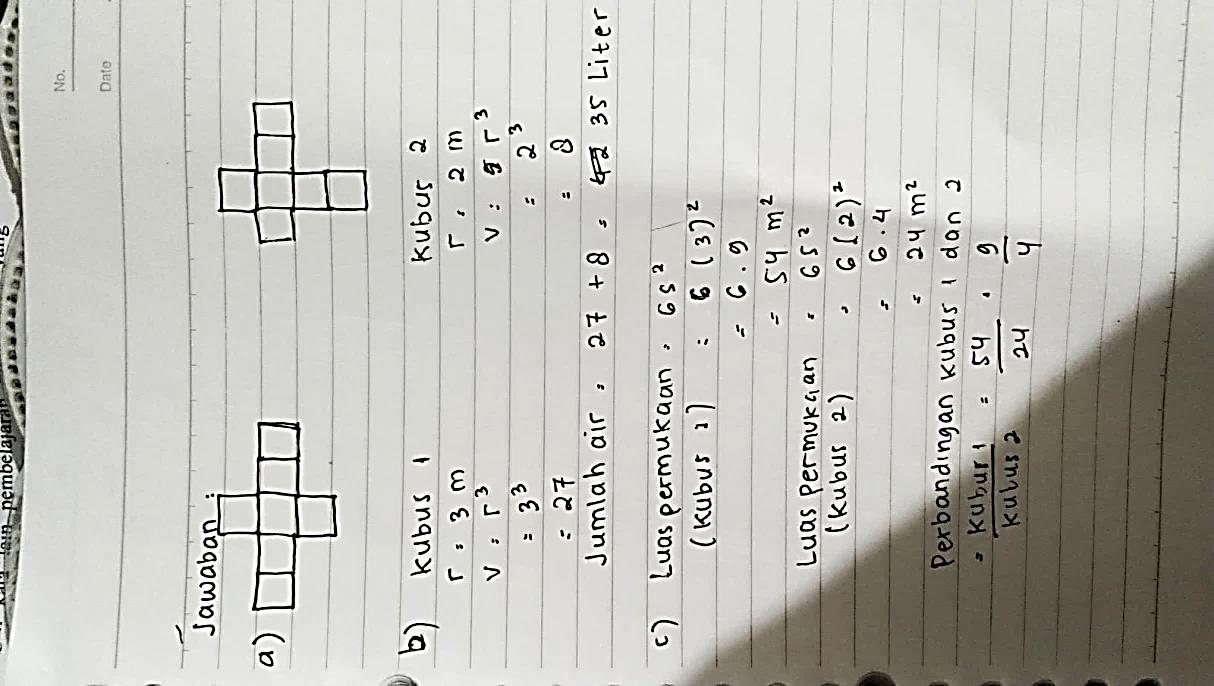 No.
Date
pembelajaran
Jawaban :
a)
b) Kubus 1 Kubus 2
r = 3 m r = 2 m
V = r³ V = r³
= 3³ = 2³
= 27 = 8
Jumlah air = 27 + 8 = 35 Liter
c) Luas permukaan = 6s²
(Kubus 1) = 6 (3)²
= 6 . 9
= 54 m²
Luas permukaan = 6s²
(Kubus 2) = 6(2)²
= 6 . 4
= 24 m²
Perbandingan kubus 1 dan 2
= Kubus 1 / Kubus 2 = 54 / 24 = 9 / 4